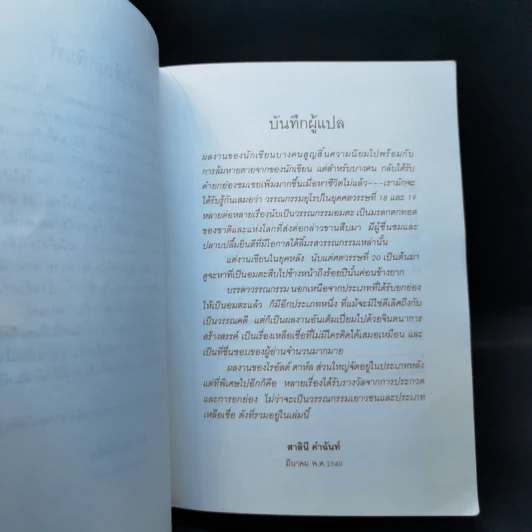 บันทึกผู้แปล
ผลงานของนักเขียนบางคนสูญสิ้นความนิยมไปพร้อมกับ
การล้มหายตายจากของนักเขียน แต่สำหรับบางคน กลับได้รับ
คำยกย่องชมเชยเพิ่มมากขึ้นเมื่อหาชีวิตไม่แล้ว---เรามักจะ
ได้รับรู้กันเสมอว่า วรรณกรรมยุโรปในยุคศตวรรษที่ 18 และ 19
หลายต่อหลายเรื่องนับเป็นวรรณกรรมอมตะ เป็นมรดกตกทอด
ของชาติและแห่งโลกที่ส่งต่อกล่าวขานสืบมา มีผู้ชื่นชมและ
ปลาบปลื้มยินดีที่มีโอกาสได้ลิ้มรสวรรณกรรมเหล่านั้น
แต่งานเขียนในยุคหลัง นับแต่ศตวรรษที่ 20 เป็นต้นมา
ดูจะหาที่เป็นอมตะสืบไปข้างหน้าถึงร้อยปีนั้นค่อนข้างยาก
บรรดาวรรณกรรม นอกเหนือจากประเภทที่ได้รับยกย่อง
ให้เป็นอมตะแล้ว ก็มีอีกประเภทหนึ่ง ที่แม้จะมิใช่ดีเลิศถึงกับ
เป็นวรรณคดี แต่ก็เป็นผลงานอันเต็มเปี่ยมไปด้วยจินตนาการ
สร้างสรรค์ เป็นเรื่องเหลือเชื่อที่ไม่มีใครคิดได้เสมอเหมือน และ
เป็นที่ชื่นชอบของผู้อ่านจำนวนมากมาย
ผลงานของโรอัลด์ ดาห์ล ส่วนใหญ่จัดอยู่ในประเภทหลัง
แต่ที่พิเศษไปอีกก็คือ หลายเรื่องได้รับรางวัลจากการประกวด
และการยกย่อง ไม่ว่าจะเป็นวรรณกรรมเยาวชนและประเภท
เหลือเชื่อ ดังที่รวมอยู่ในเล่มนี้
สาลินี คำฉันท์
มีนาคม พ.ศ.2540